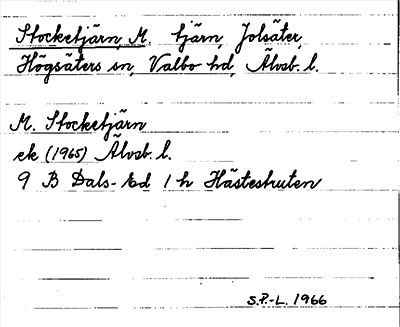 Stocketjärn, M. tjärn, Jolsäter,
Högsäters sn, Valbo hd, Älvsb. l.
M. Stocketjärn
ek (1965) Älvsb. l.
9 B Dals-Ed 1 h Hästeshuten
S.P.-L. 1966